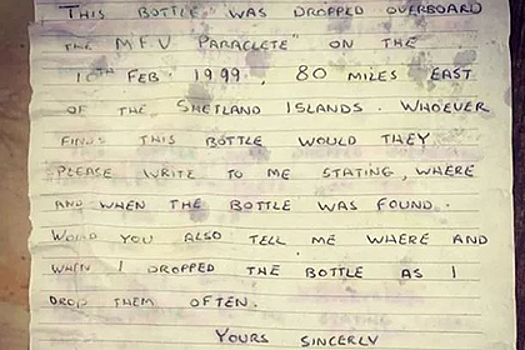 THIS BOTTLE WAS DROPPED OVERBOARD
THE M.F.V PARACLETE" ON THE
10TH FEB. 1999, 80 MILES EAST
OF THE SHETLAND ISLANDS. WHOEVER
FINDS THIS BOTTLE WOULD THEY
PLEASE WRITE TO ME STATING, WHERE
AND WHEN THE BOTTLE WAS FOUND.
WOULD YOU ALSO TELL ME WHERE AND
WHEN I DROPPED THE BOTTLE AS I
DROP THEM OFTEN.
YOURS SINCERLY